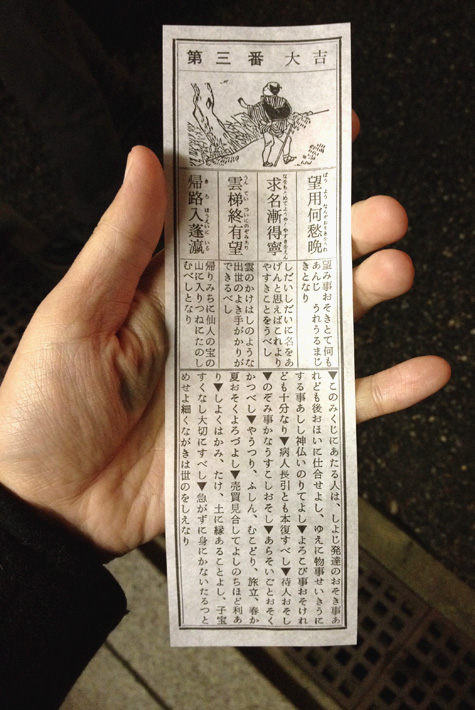 第三番大吉
望用何愁晩
求名漸得寧
雲梯終有望
帰路入蓬瀛
望み事おそきとて何も
あんじ うれうるまじ
きとなり
しだいしだいに名をあ
げんと思えばこれより
やすきことをうべし
雲のかけはしのような
出世のよき手がかりが
できるべし
帰りみちに仙人の宝の
山に入りつねにたのし
むべしとなり
▼このみくじにあたる人は、しよじ発達のおそき事あ
れども後おほいに仕合せよし、ゆえに物事せいきうに
する事あしし神仏いのりてよし▼よろこび事おそけれ
ども十分なり▼病人長引とも本復すべし▼待人おそし
▼のぞみ事かなうすこしおそし▼あらそいごとおそく
かつべし▼やうつり、ふしん、むこどり、旅立、春か
夏おそくよろづよし▼売買見合してよしのちほど利あ
り▼しよくはかみ、たけ、土に縁あることよし、子宝
すくなし大切にすべし▼急がずに身にかないたるつと
めせよ細くながきは世のをしえなり